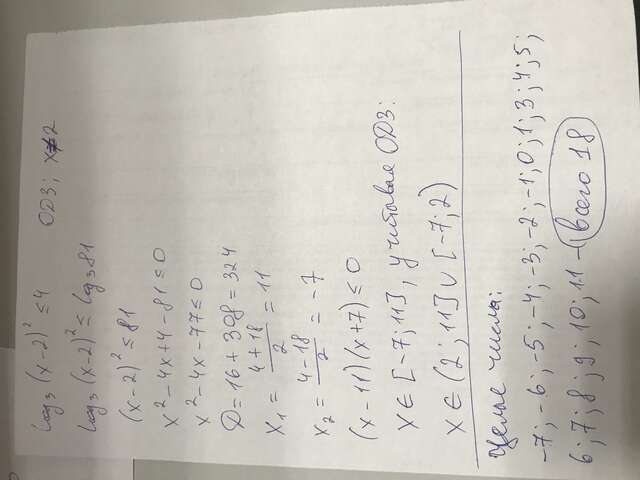 log₃ (x-2)² ≤ 4 ОДЗ; x≠2
log₃ (x-2)² ≤ log₃81
(x-2)² ≤ 81
x² - 4x + 4 - 81 ≤ 0
x² - 4x - 77 ≤ 0
D = 16 + 308 = 324
x₁ = (4+18)/2 = 11
x₂ = (4-18)/2 = -7
(x-11)(x+7) ≤ 0
x ∈ [-7; 11], учитывая ОДЗ:
x ∈ (2; 11] ∪ [-7; 2)
Целые числа:
-7; -6; -5; -4; -3; -2; -1; 0; 1; 3; 4; 5;
6; 7; 8; 9; 10; 11 - всего 18